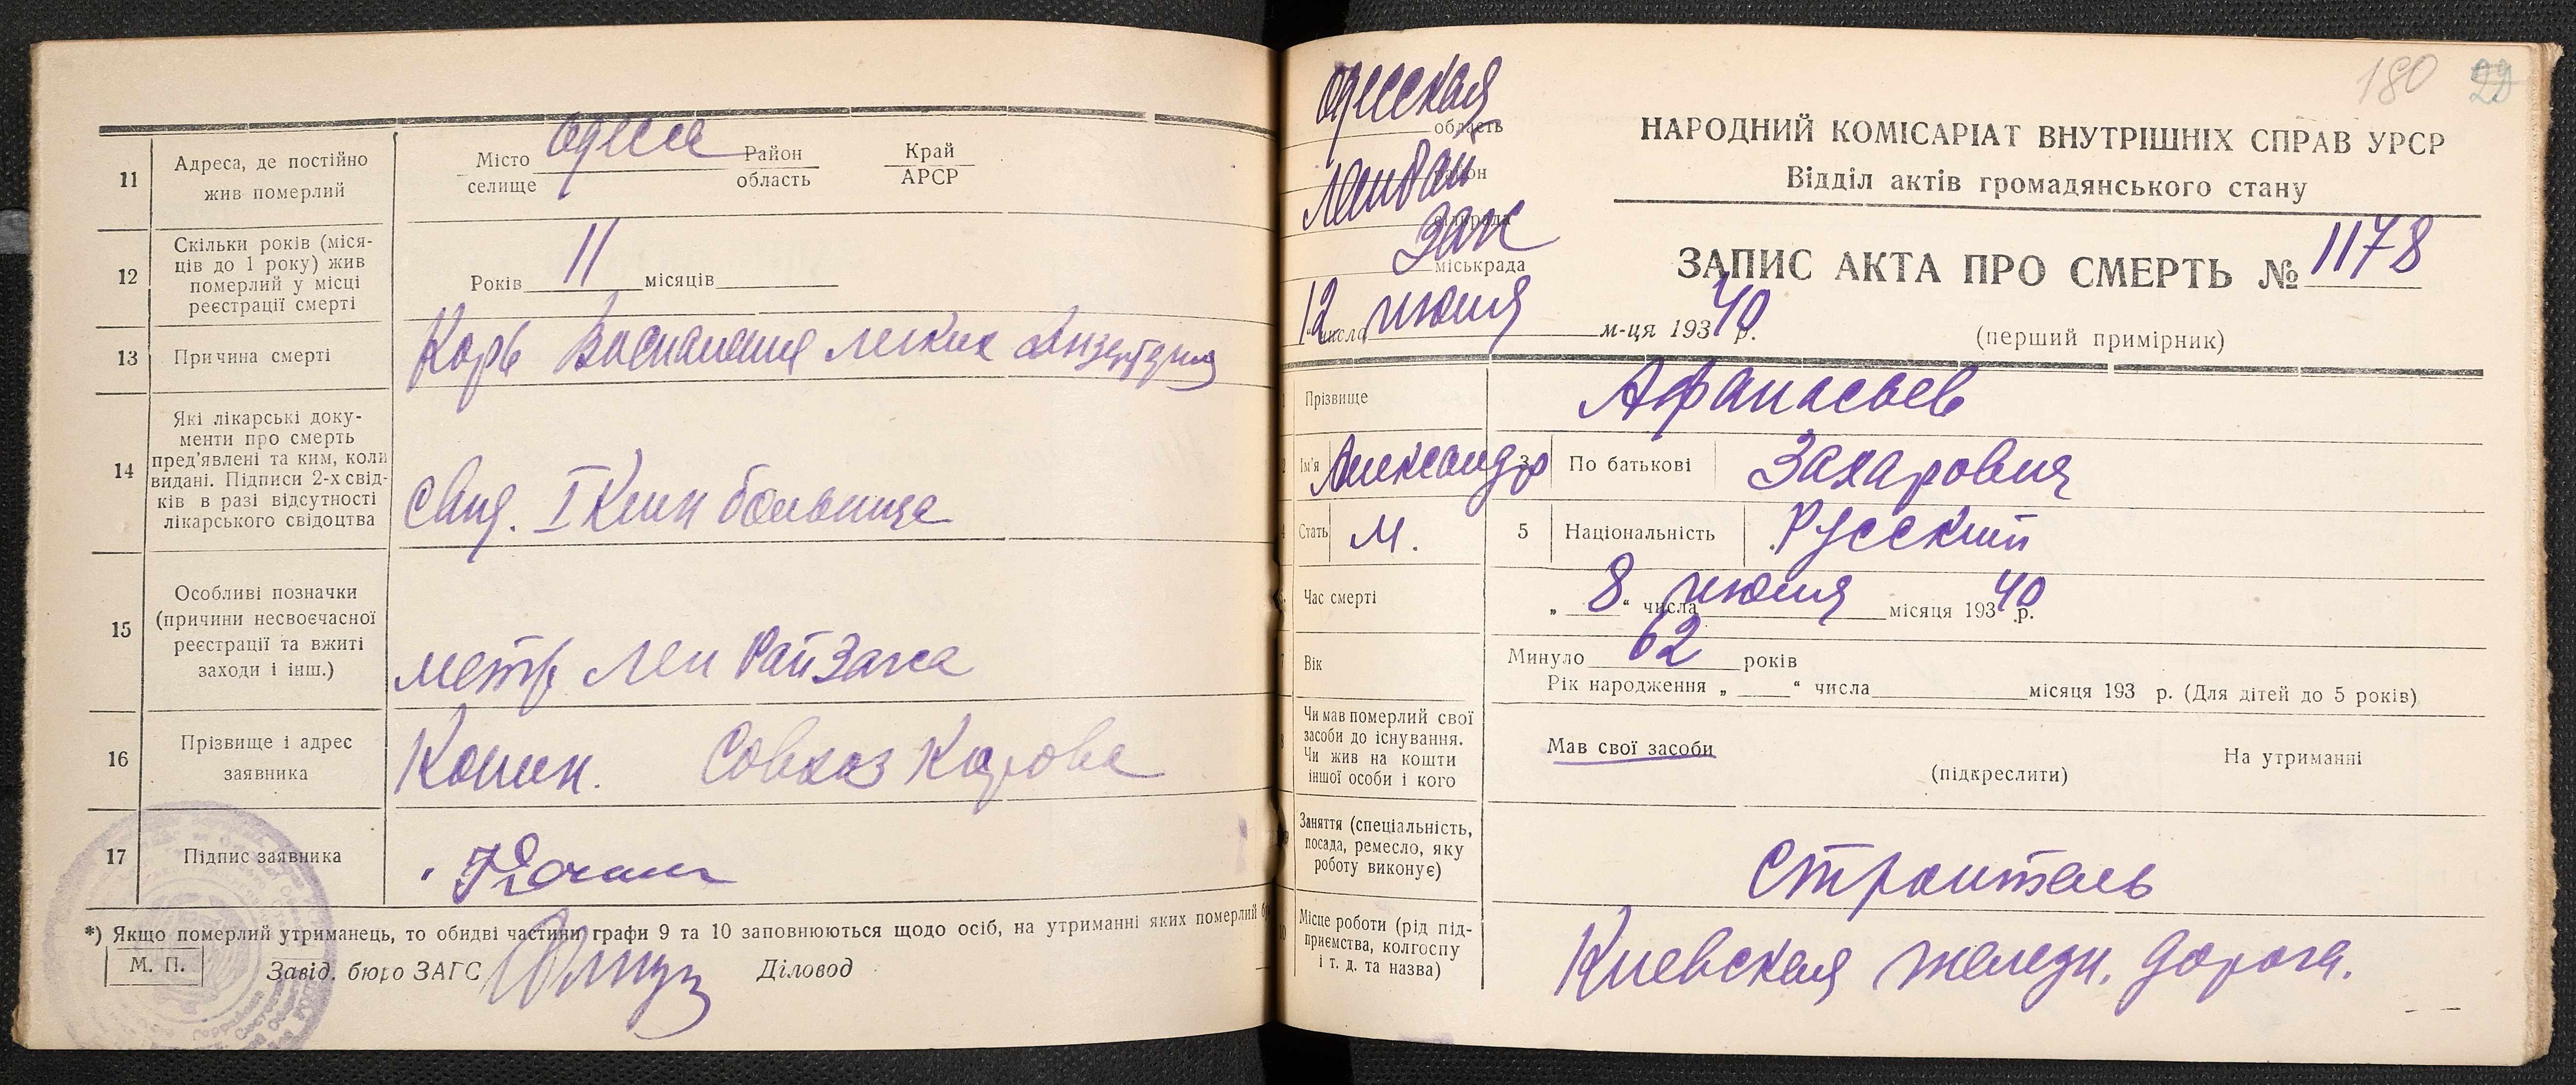 11
Адреса, де постійно
жив померлий
Місто
селище
Одесса
Район
область
Край
АРСР
12
Скільки років (міся-
ців до 1 року) жив
померлий у місці
реєстрації смерті
Років 11 місяців
13
Причина смерті
Корь Воспаление легких
14
Які лікарські доку-
менти про смерть
пред'явлені та ким, коли
видані. Підписи 2-х свід-
ків в разі відсутності
лікарського свідоцтва
I Клин больница
15
Особливі позначки
(причини несвоєчасної
реєстрації та вжиті
заходи і інш.)
метр Лен РайЗагса
16
Прізвище і адрес
заявника
Совхоз Кирова
17
Підпис заявника
*) Якщо померлий утриманець, то обидві частини графи 9 та 10 заповнюються щодо осіб, на утриманні яких померлий
М. П.
Завід. бюро ЗАГС
Діловод
180 29
Одесская
область
район
сільрада
Заг
міськрада
12 числа июня м-ця 193 40 р.
НАРОДНИЙ КОМІСАРІАТ ВНУТРІШНІХ СПРАВ УРСР
Відділ актів громадянського стану
ЗАПИС АКТА ПРО СМЕРТЬ № 1178
(перший примірник)
Прізвище
Афанасьев
Ім'я
Александр
3
По батькові
Захарович
Стать
М.
5
Національність
Русский
Час смерті
„ 8 “ числа июня місяця 193 40 р.
Вік
Минуло 62 років
Рік народження „ “ числа місяця 193 р. (Для дітей до 5 років)
Чи мав померлий свої
засоби до існування.
Чи жив на кошти
іншої особи і кого
Мав свої засоби
(підкреслити)
На утриманні
Заняття (спеціальність,
посада, ремесло, яку
роботу виконує)
Строитель
Місце роботи (рід під-
приємства, колгоспу
і т. д. та назва)
Киевская железн. дорога.